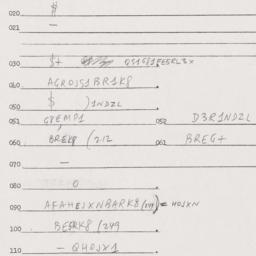 020 $
021 —
030 $+ QS1G81FEERL3X
040 AGROJS1BR1K8
050 $ )1NDZL
051 G8EMP1 052 D3R1NDZL
060 BREK8 (212 061 BREG+
070 —
080 0
090 AFAHEJXNBARK8 = HOJXN
100 BEERK8 (249
110 — QHOJX1